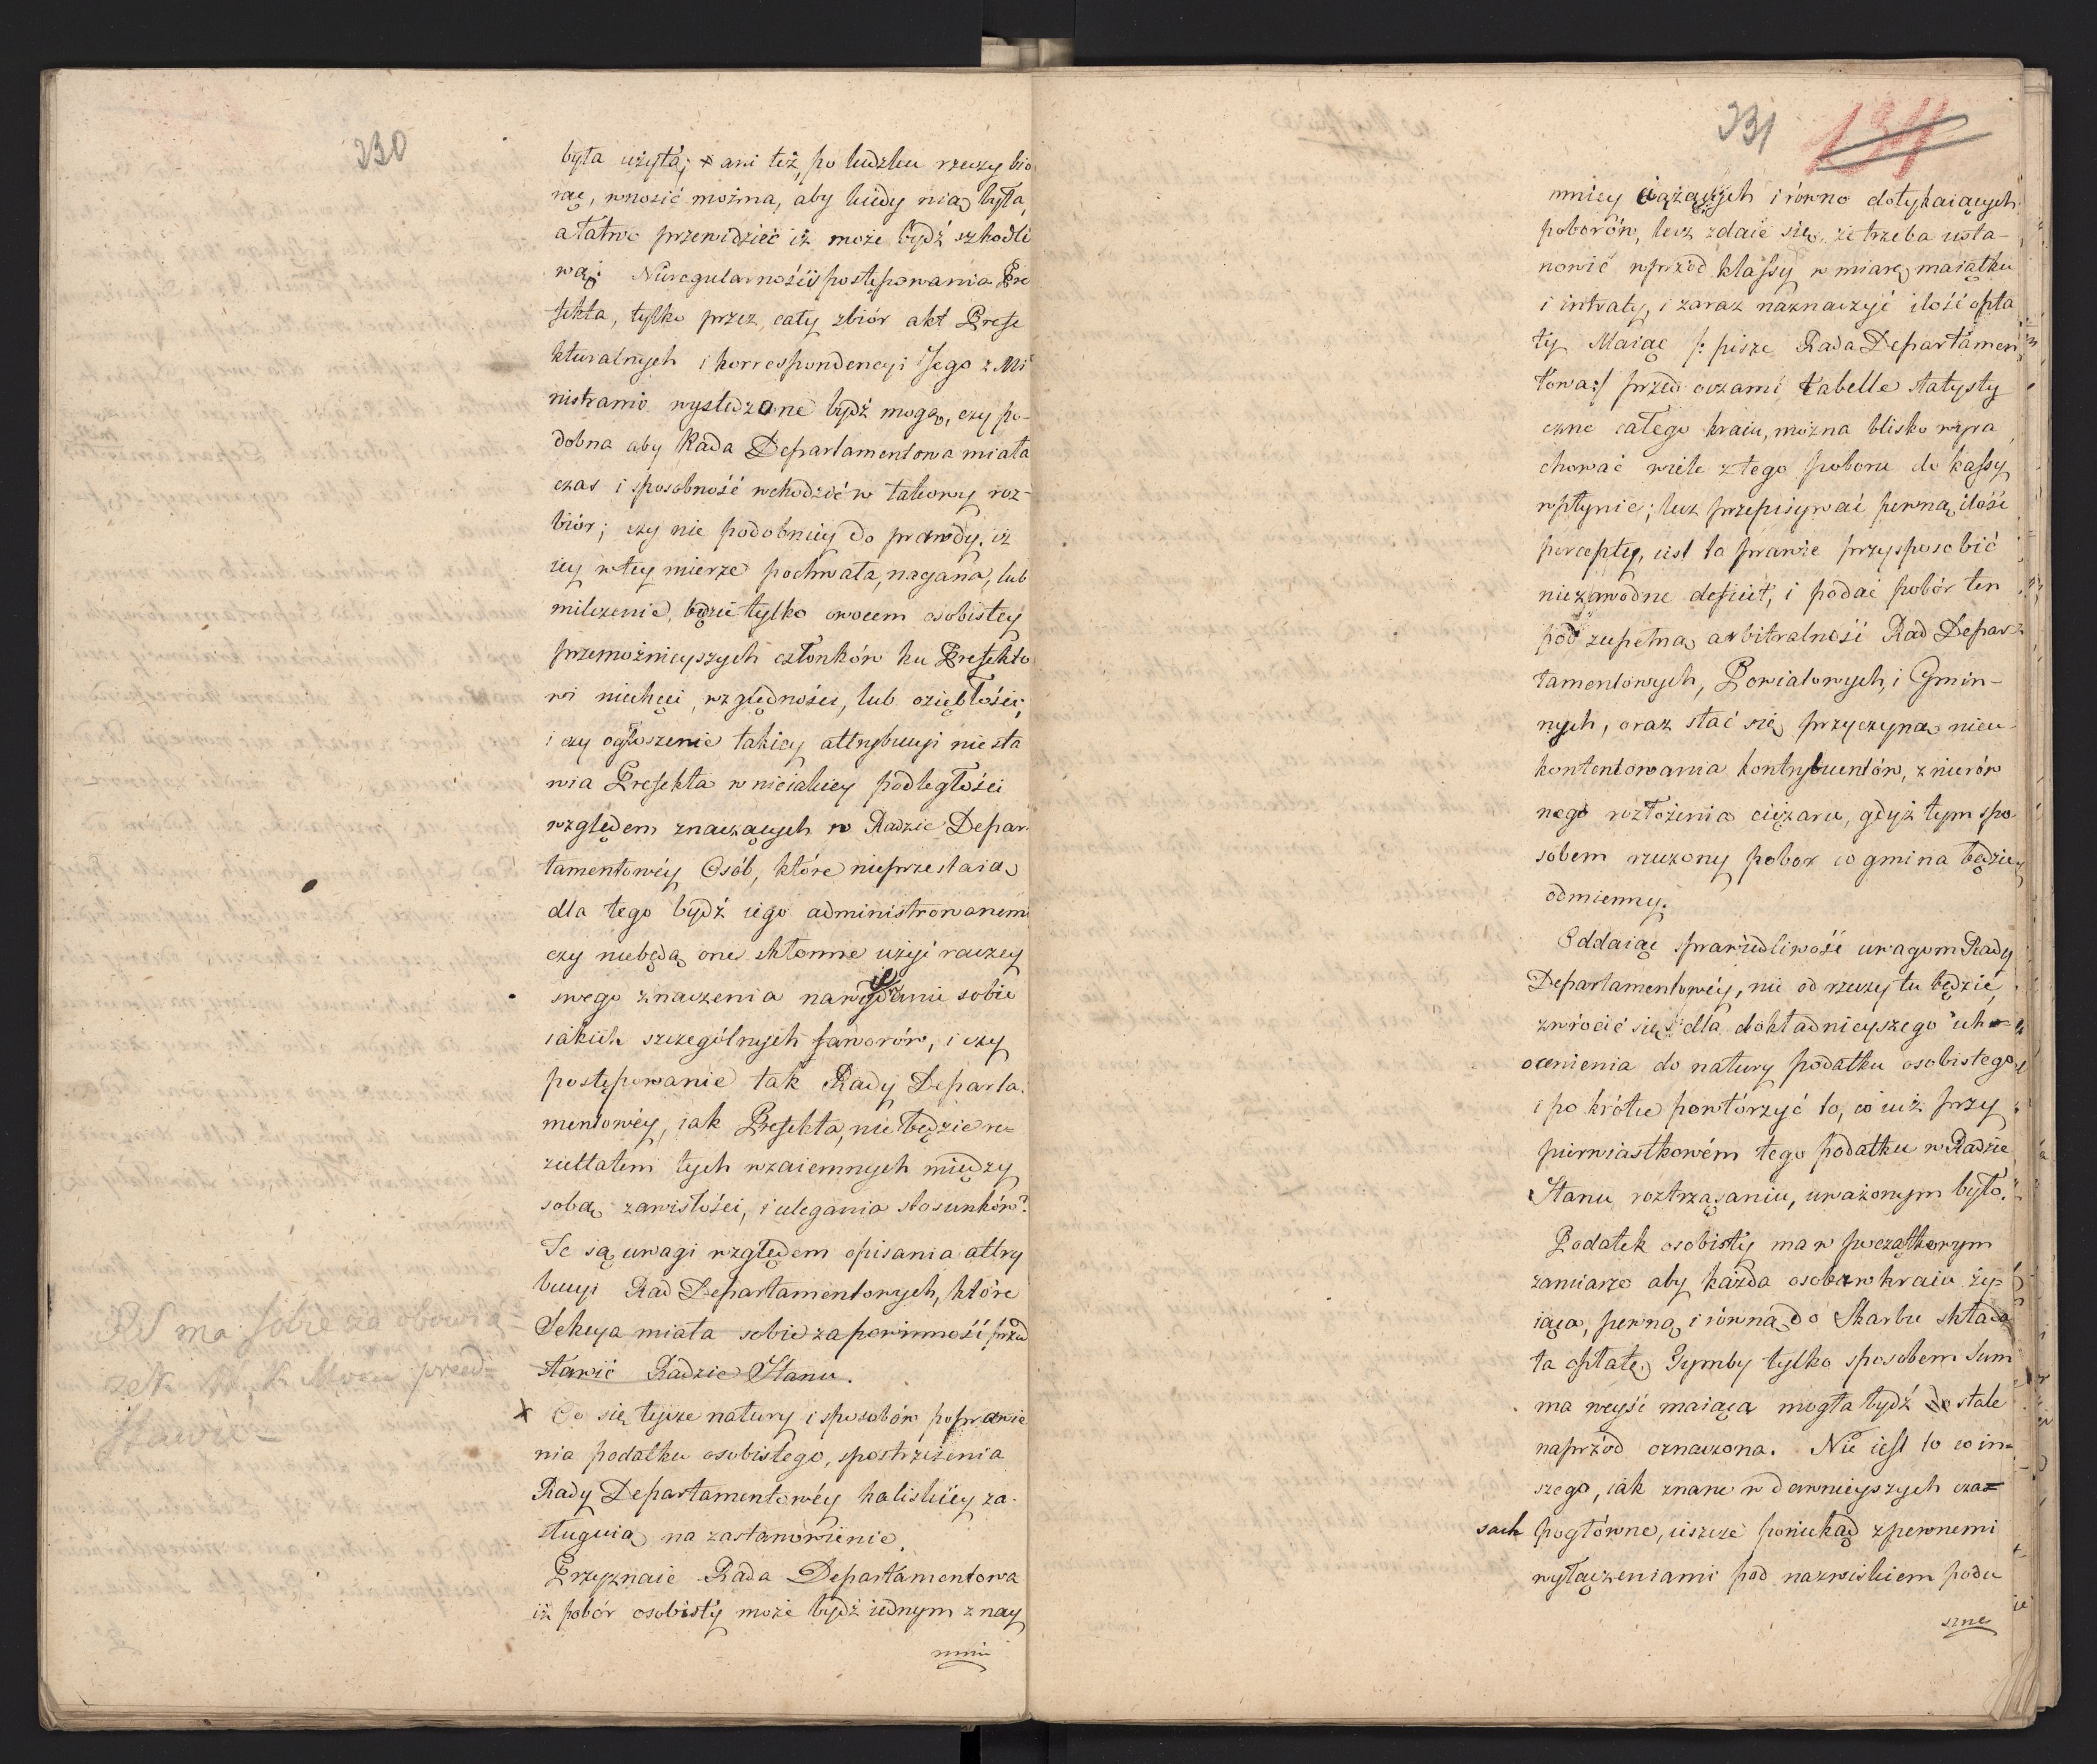 330
była użytą; x ani też, po ludzku rzeczy bio
rąc, wnosić można, aby kiedy nią była,
a łatwo przewidzieć iż może bydź szkodli
wą. Nieregularności postępowania Pre
fekta, tylko przez cały zbiór akt Prefe
kturalnych i korrespondencyi Jego z Mi
nistrami wyśledzone bydź mogą, czy po-
dobna aby Rada Departamentowa miała
czas i sposobność wchodzić w takowy roz-
biór; czy nie podobniey do prawdy, iż
iey w tey mierze pochwała, nagana, lub
milczenie, będzie tylko owocem osobistey
przemożnieyszych członków ku Prefekto
wi niechęci, względności, lub oziębłości,
i czy ogłoszenie takiey attrybucyi nie sta
wia Prefekta w nieiakiey podległości
względem znaczących w Radzie Depar
tamentowéy Osób, które nieprzestaią
dla tego bydź iego administrowanemi
czy niebędą one skłonne użyć raczey
swego znaczenia na wyiednanie sobie
iakich szczególnych faworów, i czy
postępowanie tak Rady Departa.
mentowéy, iak Prefekta, nie będzie re=
zultatem tych wzaiemnych między
sobą zawisłości, i ulegania stosunków?
Te są uwagi względem opisania attry
bucyi Rad Departamentowych, które
Sekcya miała sobie za powinność przed
stawić Radzie Stanu.
RS ma sobie za obowią-
zek W. K. Mości przed=
stawić =
x Co się tycze natury i sposobów poprawie
nia podatku osobistego, spostrzeżenia
Rady Departamentowéy kaliskiey za-
sługuią na zastanowienie.
Przyznaie Rada Departamentowa
iż pobór osobisty może bydź iednym z nay
mniey
331 134
mniey ciążących i równo dotykaiących
poborów, lecz zdaie się, że trzeba usta-
nowić wprzód klassy w miarę maiątku
i intraty, i zaraz naznaczyć ilość opła
ty Maiąc /: pisze Rada Departamen
towa:/ przed oczami tabelle statysty
czne całego kraiu, można blisko wyra
chować wiele z tego poboru do kassy
wpłynie; lecz przepisywać pewną ilość
percepty, iest to prawie przysposobić
niezawodne deficit, i podać pobór ten
pod zupełną arbitralność Rad Depar=
tamentowych, Powiatowych, i Gmin-
nych, oraz stać się przyczyną nieu-
kontentowania kontrybuentów, z nierów
nego rozłożenia ciężaru, gdyż tym spo
sobem rzeczony pobor co gmina będzie
odmienny.
Oddaiąc sprawiedliwość uwagom Rady
Departamentowéy, nie od rzeczy tu będzie,
zwrócić się dla dokładnieyszego
ocenienia do natury podatku osobistego,
i po krótce powtórzyć to, co iuż przy
pierwiastkowém tego podatku w Radzie
Stanu roztrząsaniu, uważonym było.
Podatek osobisty ma w początkowym
zamiarze aby każda osoba w kraiu ży=
iąca, pewną i równą do Skarbu składa
ła opłatę. Tymby tylko sposobem Sum
ma weyść maiąca mogła bydź stale
naprzód oznaczona. Nie iest to co in=
szego, iak znane w dawnieyszych cza=
sach pogłówne, ieszcze poniekąd z pewnemi
wyłączeniami pod nazwiskiem podu
szne